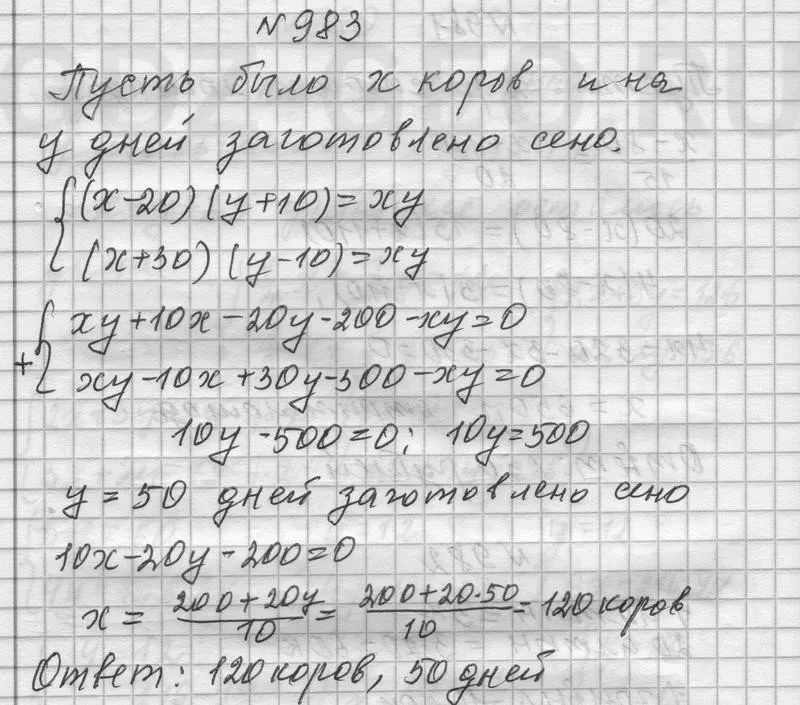 №983
Пусть было x коров и на
y дней заготовлено сено.
(x-20)(y+10)=xy
(x+30)(y-10)=xy
xy+10x-20y-200-xy=0
+
xy-10x+30y-300-xy=0
10y-500=0; 10y=500
y=50 дней заготовлено сено
10x-20y-200=0
x = 200+20y/10 = 200+20·50/10 = 120 коров
Ответ: 120 коров, 50 дней